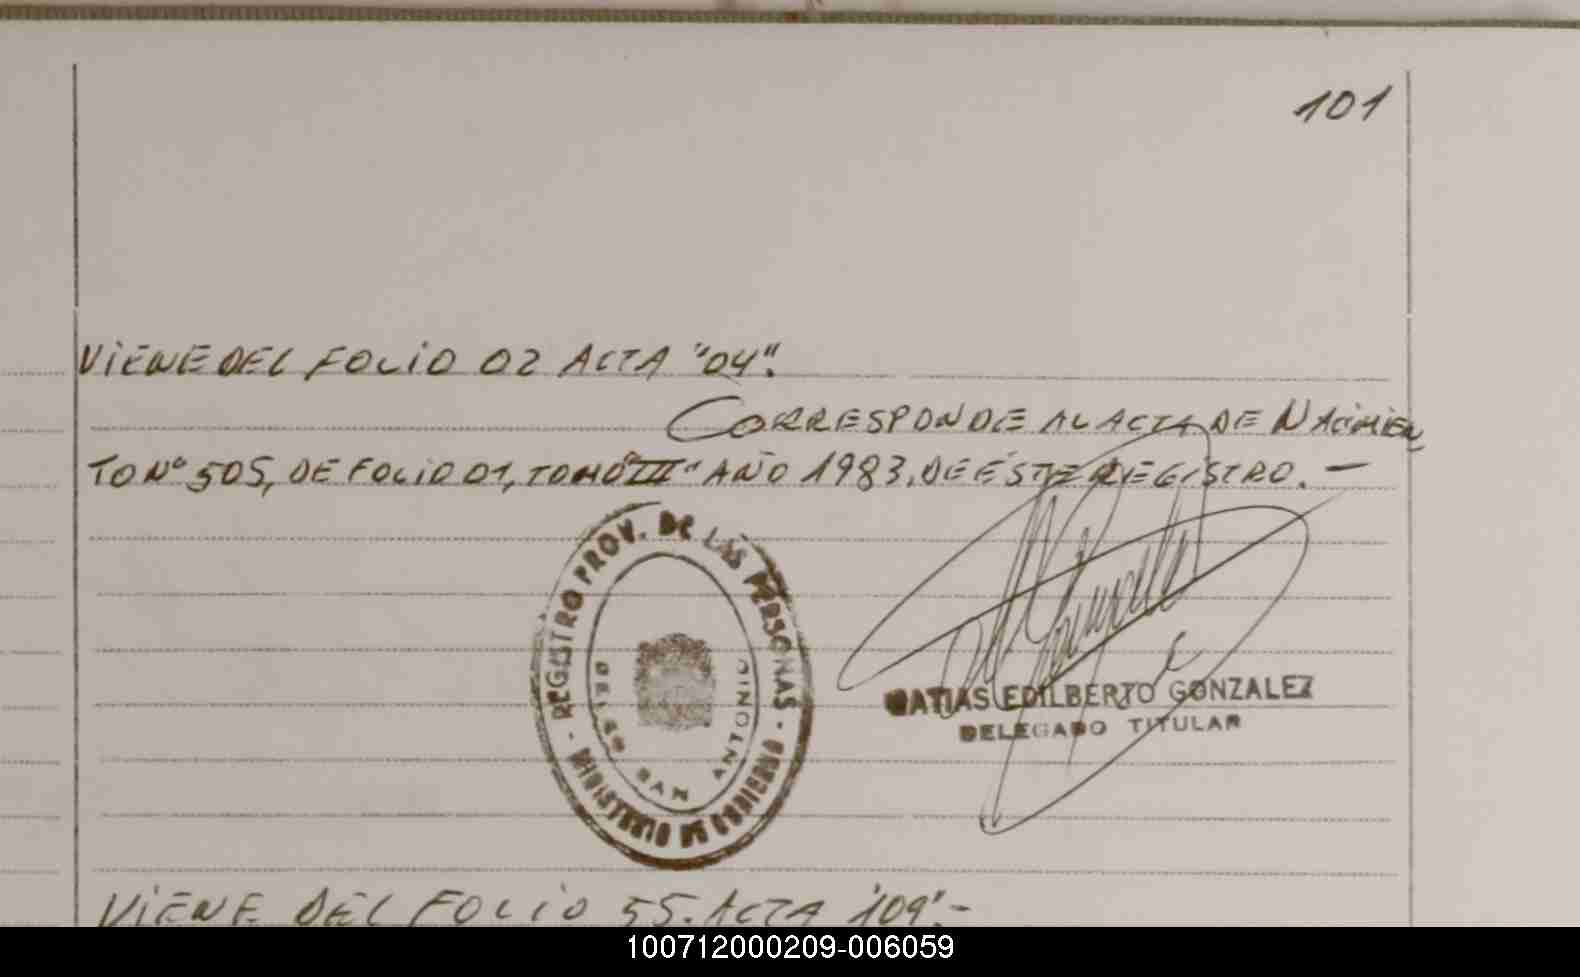 101
VIENE DEL FOLIO 02 ACTA "04".
CORRESPONDE AL ACTA DE NACIMIEN
TO Nº 505, DE FOLIO 01, TOMO "III" AÑO 1983, DE ÉSTE REGISTRO. —
- REGISTRO PROV. DE LAS PERSONAS -
MINISTERIO DE GOBIERNO
SAN ANTONIO
MATIAS EDILBERTO GONZALEZ
DELEGADO TITULAR
VIENE DEL FOLIO 55. ACTA "109".-
100712000209-006059